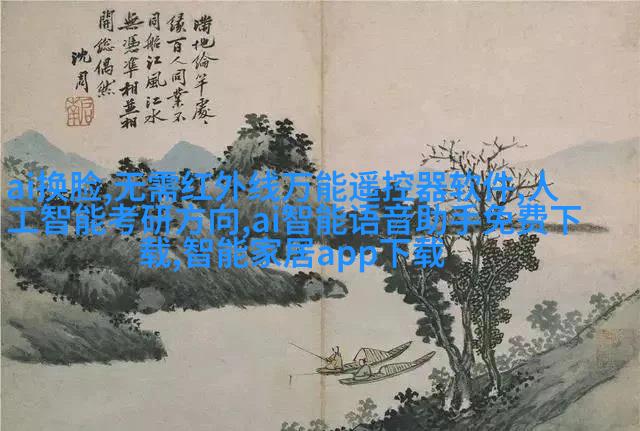 滿地綸竿處處
緣百人同業不
同船江風江水
無憑準相並相
開總偶然
沈周
ai换脸,无需红外线万能遥控器软件,人
工智能考研方向,ai智能语音助手免费下
载,智能家居app下载